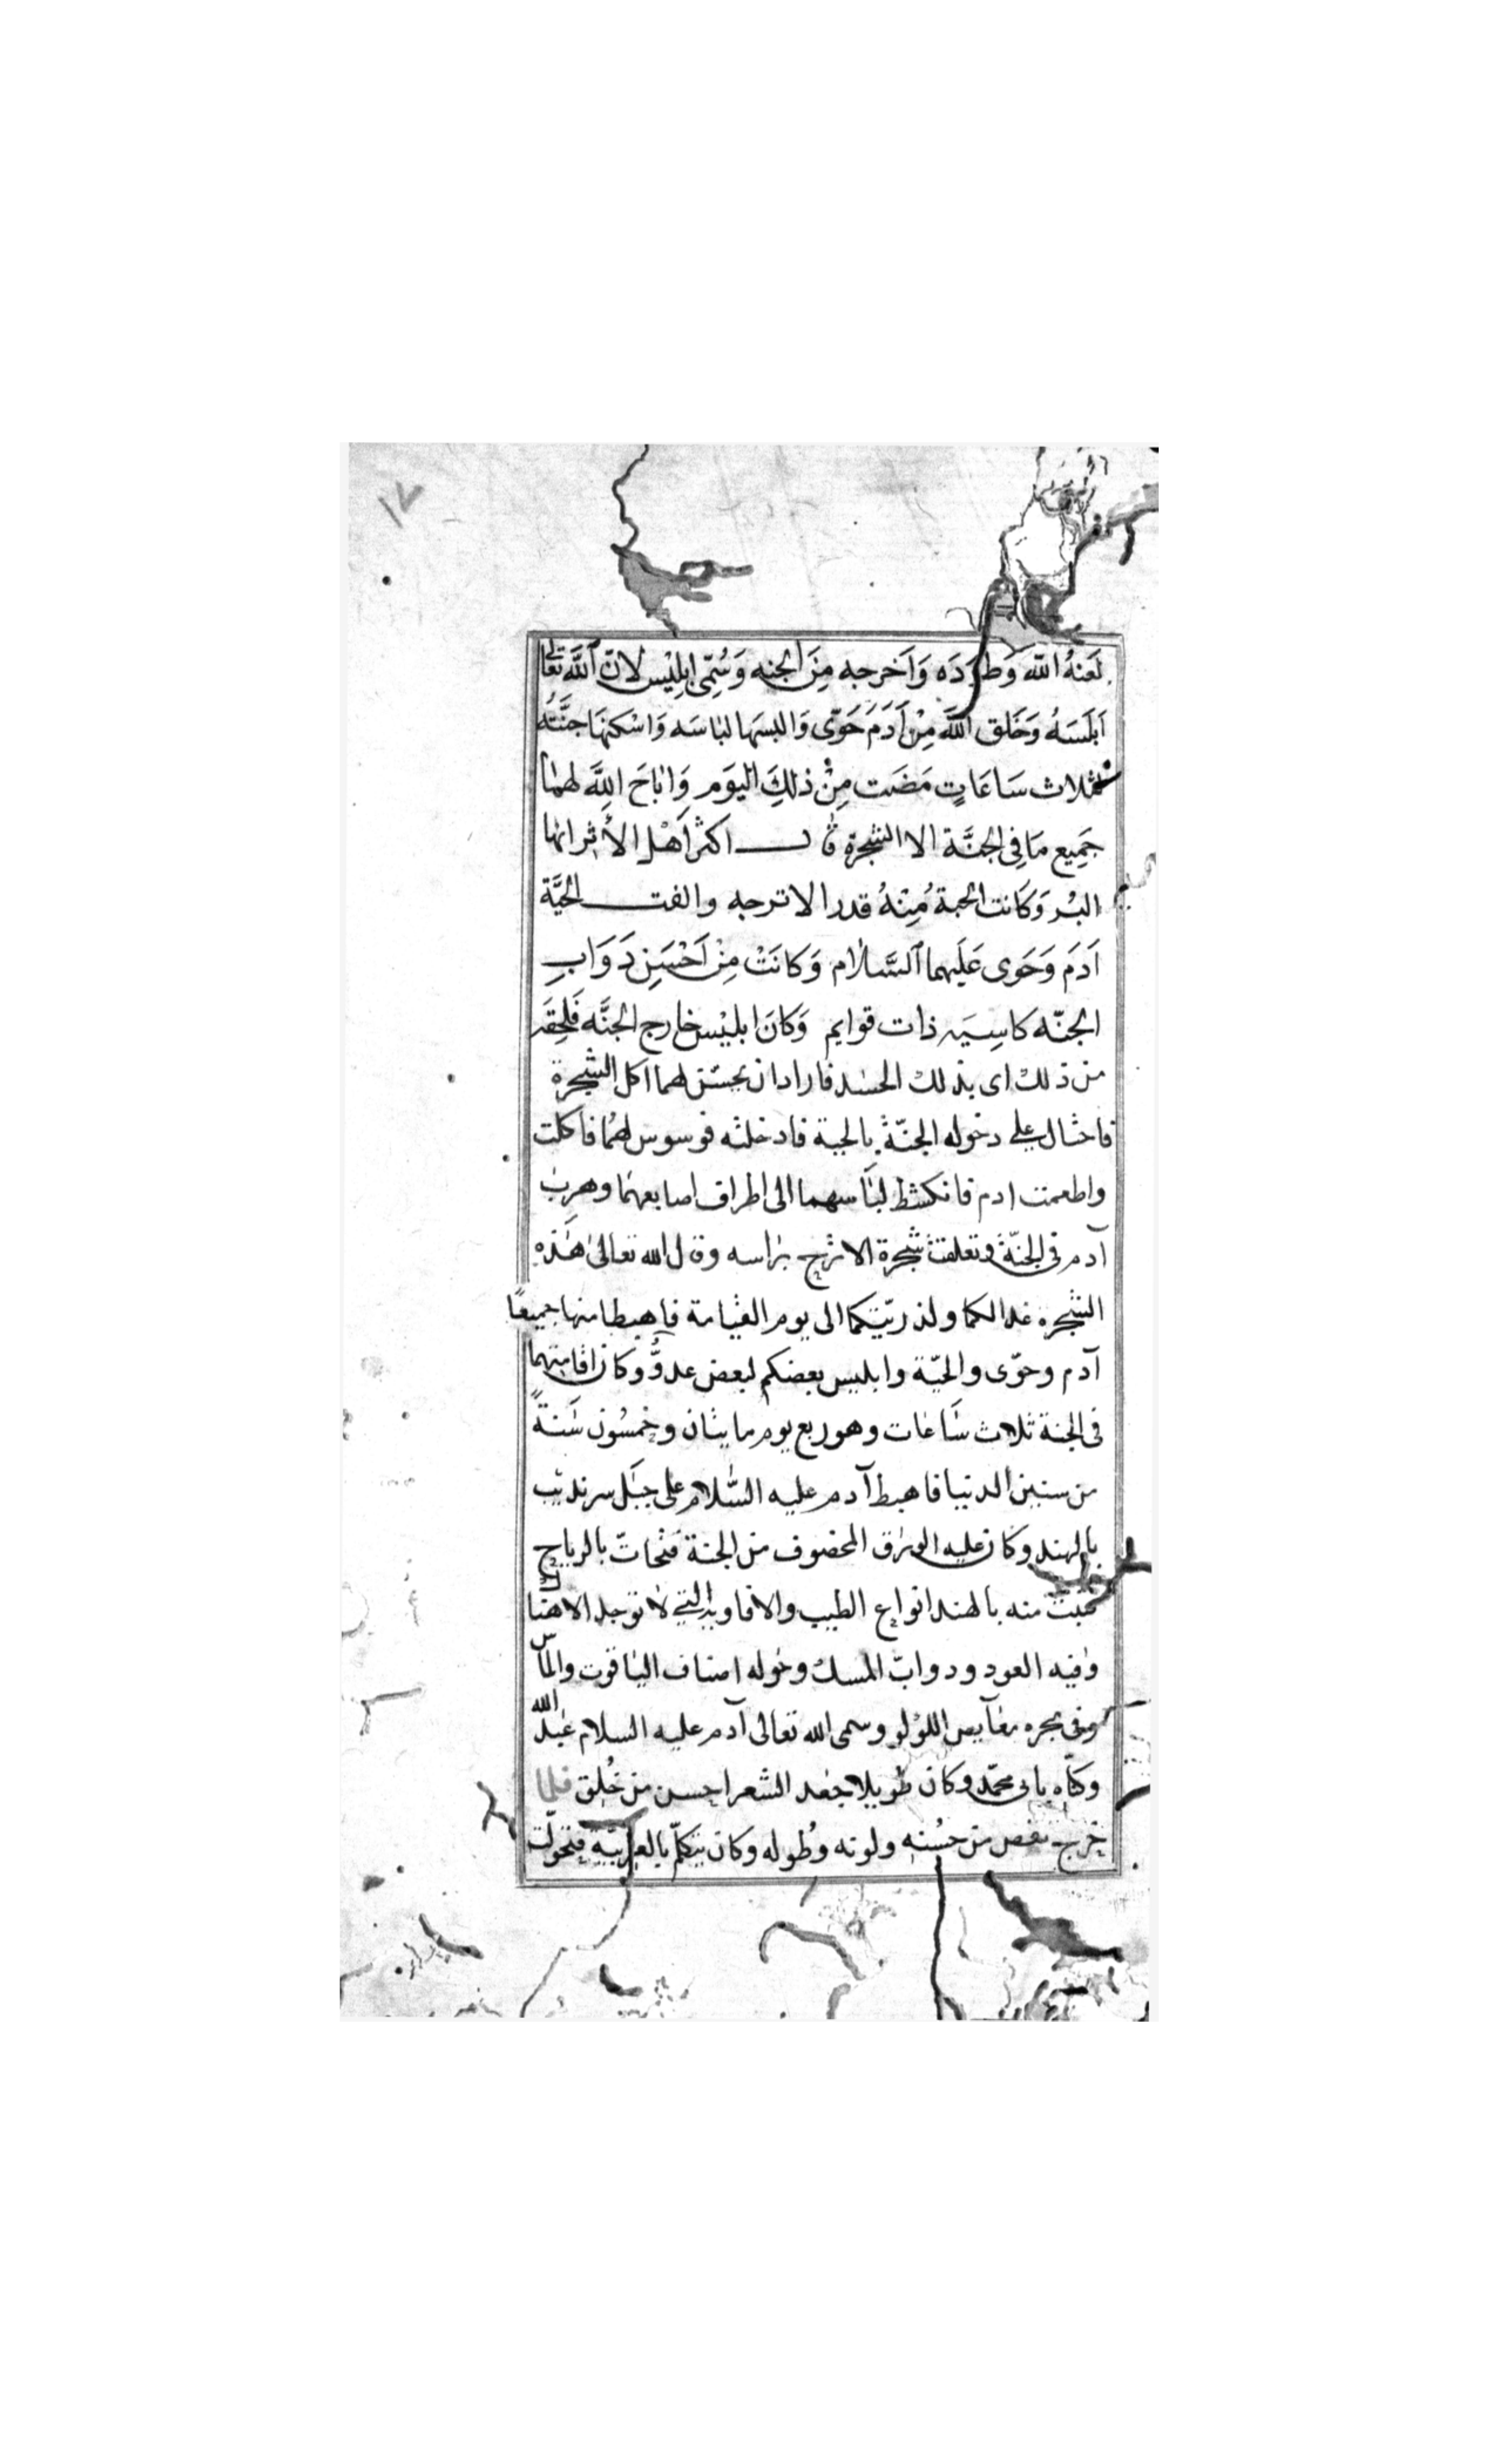 ١٧
لَعَنهُ اللّه وَطرَدَه وَاَخرجه مِنَ الجنه وَسُمّى ابليْس لانّ اللَّه تعالى
اَبلَسَهُ وَخَلق اللَّه مِنْ اَدَمَ حَوّى وَالبسَهَا لبَاسَه وَاسْكنهَا جنَّتهُ
لثلاث سَاعَاتٍ مَضَت مِنْ ذلِكَ اليوَم وَاباحَ اللَّه لهمَا
جَمِيع مَا فِى الجنَّة الا الشجرة قال اكثر اَهْل الأثر انها
البُر وَكَانت الحبة مُنِنْهُ قدر الاترجه والفت الحيَّة
اَدَمَ وَحَوى عَلَيهما السَّلام وَكانَتْ مِنْ اَحْسَنِ دَوَابِ
الجنّه كاسِيَه ذات قوايم وَكانَ ابليْس خارج الجنَّه فَلحِقَه
من ذلك اى بذلك الحسد فاراد ان يحسّن لهما اكل الشجرة
فاحتال على دخوله الجنّة بالحية فادخلته فوسوس لهُما فاكلت
واطعمت ادم فانكشط لبَاسهما الى اطراف اصابعهمَا وهرب
آدم فى الجنّة وتعلقت شجرة الاترج براسه وقال الله تعالى هَذه
الشجره غدا لكما ولذريّتكما الى يوم القيامة فاهبطا منها جميعًا
آدم وحوّى والحيّة وابليس بعضكم لبعض عدوُّ وكان اقامتهما
فى الجنة ثلاث سَاعات وهو ربع يوم مايتان وخمسُون سَنةً
من سنين الدنيا فاهبط آدم عليه السَّلام على جبَل سرنديب
بالهند وكان عليه الورَق المخصوف من الجنة فتحاتّ بالرياح
فنبت منه بالهند انواع الطيب والافاويه التى لا توجد الا هناك
وفيه العود ودوابّ المسك وحَوله اصناف الياقوت والماس
وفى بحره مغآيص اللؤلو وسمى الله تعالى آدم عليه السلام عَبد اللّه
وكنّاه بابى محمّد وكان طويلا جعد الشعر احسن من خُلق فلما
خرج نقص من حسُنه ولونه وطُوله وكان يتكلّم بالعربيّة فتحولّت